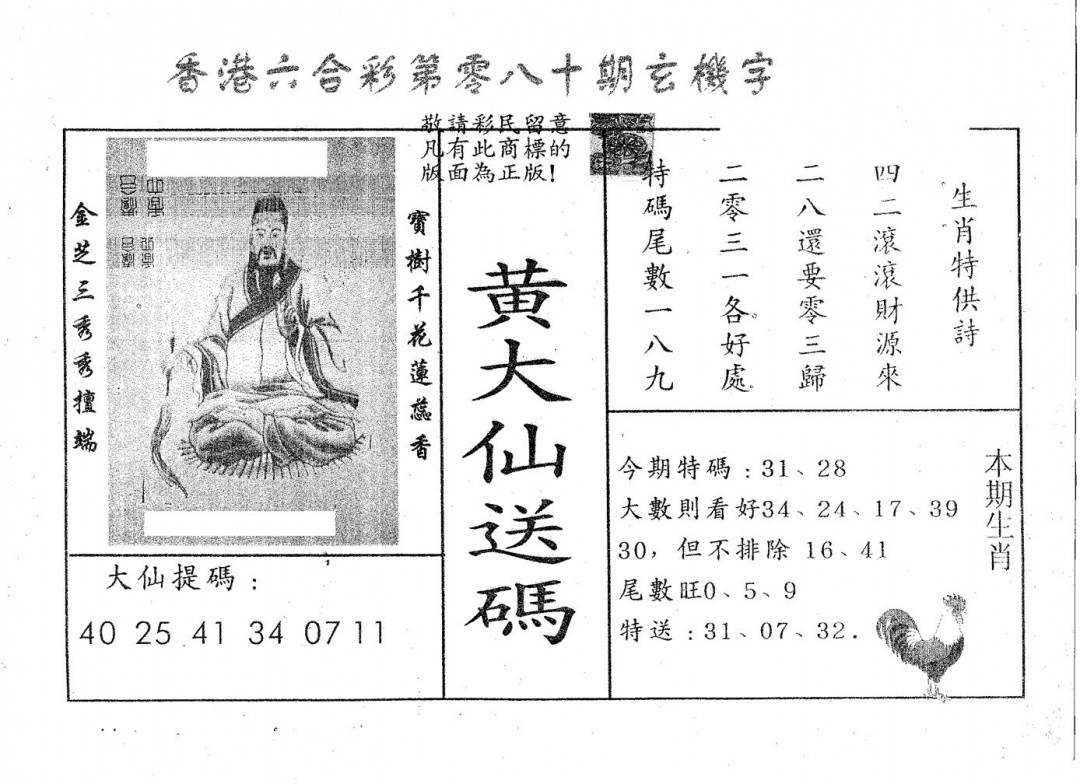 香港六合彩第零八十期玄機字
敬請彩民留意
凡有此商標的
版面為正版!
金芝三秀秀擅端
寶樹千花蓮蕊香
黄大仙送碼
生肖特供詩
四二滾滾財源來
二八還要零三歸
二零三一各好處
特碼尾數一八九
大仙提碼：
40 25 41 34 07 11
本期生肖
今期特碼：31、28
大數則看好34、24、17、39
30，但不排除 16、41
尾數旺0、5、9
特送：31、07、32.